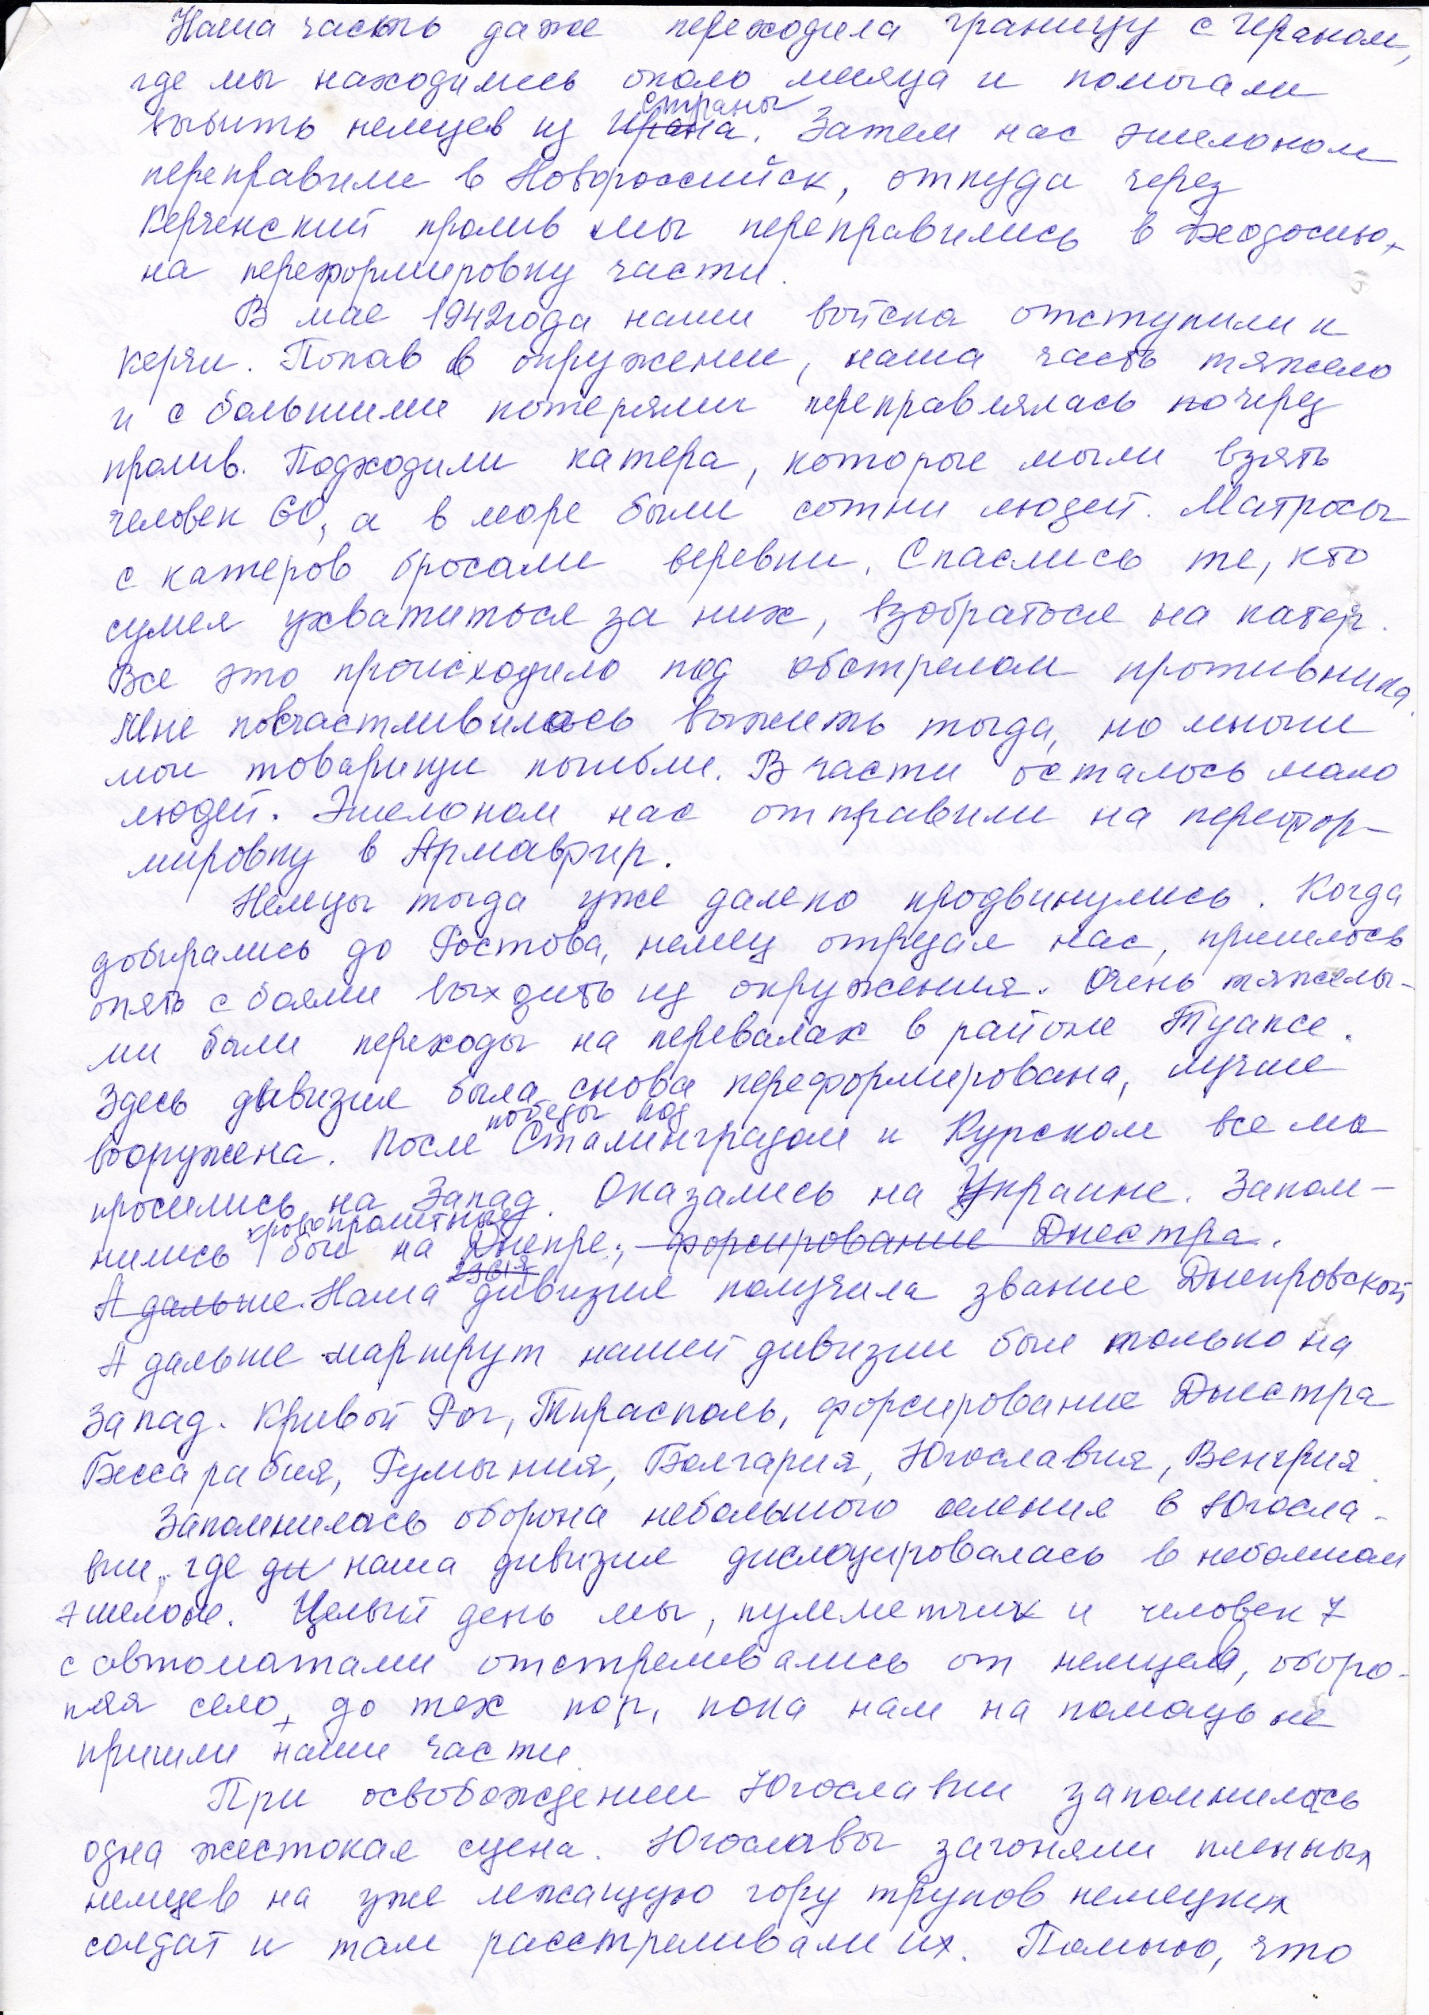 Наша часть даже переходила границу с Ираном,
где мы находились около месяца и помогали
выбить немцев из Ирана. страны Затем нас эшелоном
переправили в Новороссийск, откуда через
Керченский пролив мы переправились в Феодосию,
на переформировку части.
В мае 1942 года наши войска отступили к
Керчи. Попав в окружение, наша часть тяжело
и с большими потерями переправлялась по через
пролив. Подходили катера, которые могли взять
человек 60, а в море были сотни людей. Матросы
с катеров бросали веревки. Спаслись те, кто
сумел ухватиться за них, взобраться на катер.
Все это происходило под обстрелом противника.
Мне посчастливилось выжить тогда, но многие
мои товарищи погибли. В части осталось мало
людей. Эшелоном нас отправили на перефор-
мировку в Армавир.
Немцы тогда уже далеко продвинулись. Когда
добирались до Ростова, немец отрезал нас, пришлось
опять с боями выходить из окружения. Очень тяжелы-
ми были переходы на перевалах в районе Туапсе.
Здесь дивизия была снова переформирована, лучше
вооружена. После победы под Сталинградом и Курском все мы
просились на Запад. Оказались на Украине. Запом-
нились кровопролитные бои на Днепре, форсирование Днестра.
А дальше. Наша дивизия получила звание Днепровской
А дальше маршрут нашей дивизии был только на
Запад. Кривой Рог, Тирасполь, форсирование Днестра
Бессарабия, Румыния, Болгария, Югославия, Венгрия.
Запомнилась оборона небольшого селения в Югосла-
вии, где ди наша дивизия дислоцировалась в небольшом
эшелоне. Целый день мы, пулеметчик и человек 7
с автоматами отстреливались от немцев, оборо-
няя село, до тех пор, пока нам на помощь не
пришли наши части
При освобождении Югославии запомнилась
одна жестокая сцена. Югославы загоняли пленных
немцев на уже лежащую гору трупов немецких
солдат и там расстреливали их. Помню, что